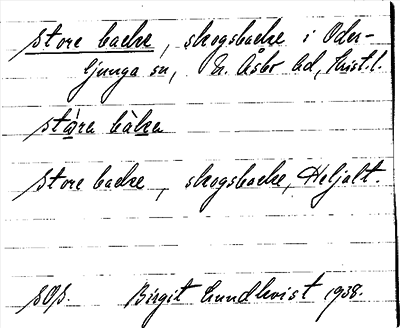 store backe, skogsbacke i Oder-
ljunga sn, N. Åsbo hd, Krist. l.
stàra bàka
store backe, skogsbacke, Heljalt.
sOp. Birgit Lundkvist 1938.